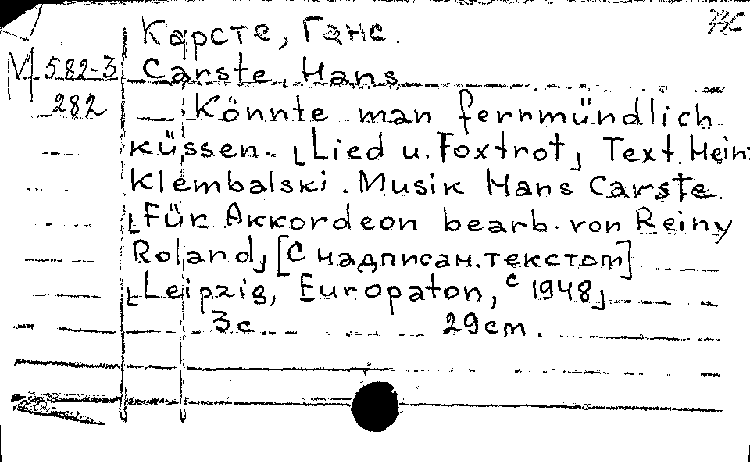 Карсте, Ганс.
М 582-3 Carste, Hans
282 Könnte man fernmündlich
küssen. [Lied u. Foxtrot] Text Hein
Klembalski. Musik Hans Carste.
[Für Akkordeon bearb. von Reiny
Roland] [С надписан. текстом]
[Leipzig, Europaton, c 1948]
3 с 29 cm.